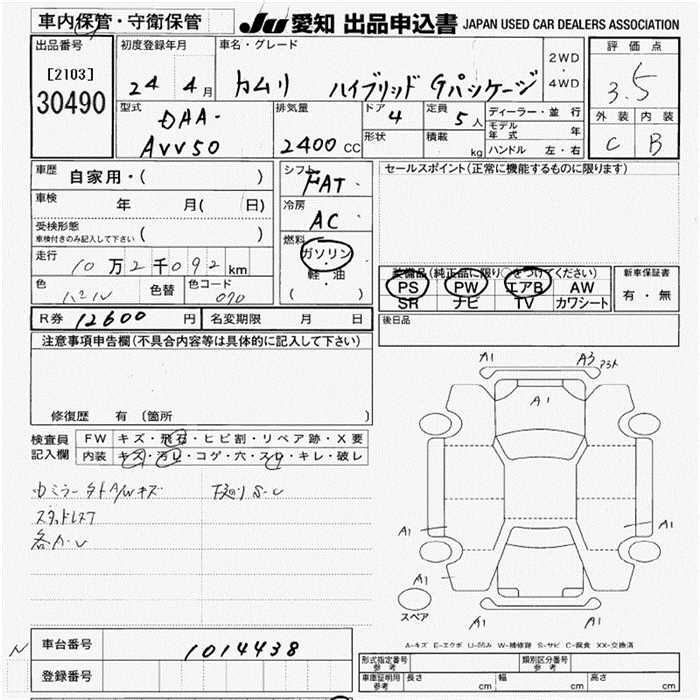 車内保管・守衛保管 JU 愛知 出品申込書 JAPAN USED CAR DEALERS ASSOCIATION
出品番号 初度登録年月 車名・グレード 2WD・4WD 評価点
[2103]
30490
24 4月 カムリ ハイブリッド Gパッケージ 3.5
型式 排気量 ドア 定員 ディーラー・並行 外装 内装
DAA- 2400cc 4 5人 モデル年式 年 C B
AVV50 形状 積載 kg ハンドル 左・右
車歴 自家用・( ) シフト FAT セールスポイント(正常に機能するものに限ります)
車検 年 月( 日) 冷房 AC
受検形態
車検付きのみ記入して下さい ( )
燃料 ガソリン・軽・油 ( )
走行 10万2千092km
色 色替 色コード 070
装備品(純正品に限り○をつけてください) 新車保証書
PS PW エアB AW 有・無
SR ナビ TV カワシート
R券 12600円 名変期限 月 日 後日品
注意事項申告欄(不具合内容等は具体的に記入して下さい)
修復歴 有(箇所 )
検査員記入欄 FW キズ・飛石・ヒビ割・リペア跡・X要
内装 キズ・汚レ・コゲ・穴・スレ・キレ・破レ
カミラータトA/Wキズ 下廻りS-U
スタットレスT
各A-U
A1 A3
A1
A1 A1
A1
A1 A1
スペア
A-キズ E-エクボ U-凹み W-補修跡 S-サビ C-腐食 XX-交換済
N 車台番号 1014438
登録番号
形式指定番号 参考 類別区分番号 参考
車庫証明用 参考 長さ cm 幅 cm 高さ cm